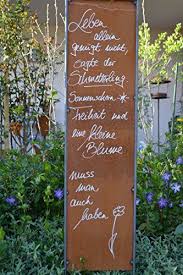 Leben
allein
genügt nicht,
sagte der
Schmetterling.
Sonnenschein
Freiheit und
eine kleine
Blume
muss
man
auch
haben